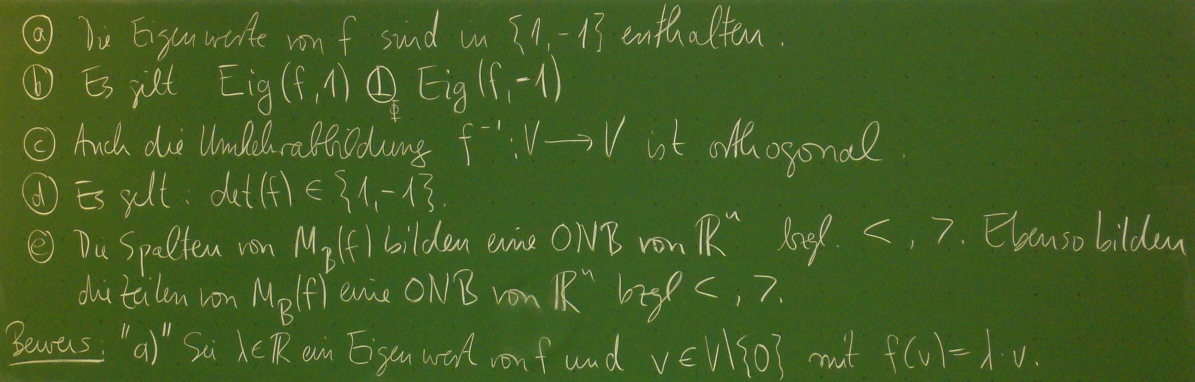 ⓐ Die Eigenwerte von f sind in {1,-1} enthalten.
ⓑ Es gilt Eig(f,1) Ⓛ_Φ Eig(f,-1)
ⓒ Auch die Umkehrabbildung f⁻¹: V → V ist orthogonal.
ⓓ Es gilt: det(f) ∈ {1,-1}.
ⓔ Die Spalten von M_B(f) bilden eine ONB von ℝⁿ bzgl. < , >. Ebenso bilden
die Zeilen von M_B(f) eine ONB von ℝⁿ bzgl < , >.
Beweis: "a)" Sei λ∈ℝ ein Eigenwert von f und v ∈ V\{0} mit f(v) = λ·v.